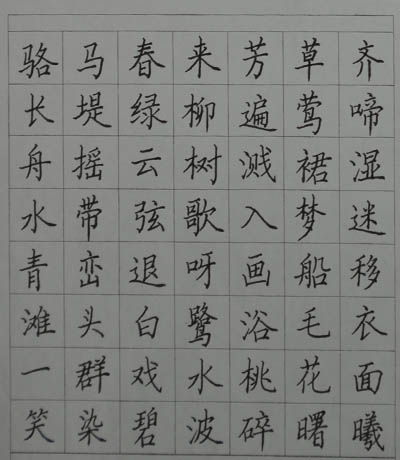 骆马春来芳草齐
长堤绿柳遍莺啼
舟摇云树溅裙湿
水带弦歌入梦迷
青峦退呀画船移
滩头白鹭浴毛衣
一群戏水桃花面
笑染碧波碎曙曦